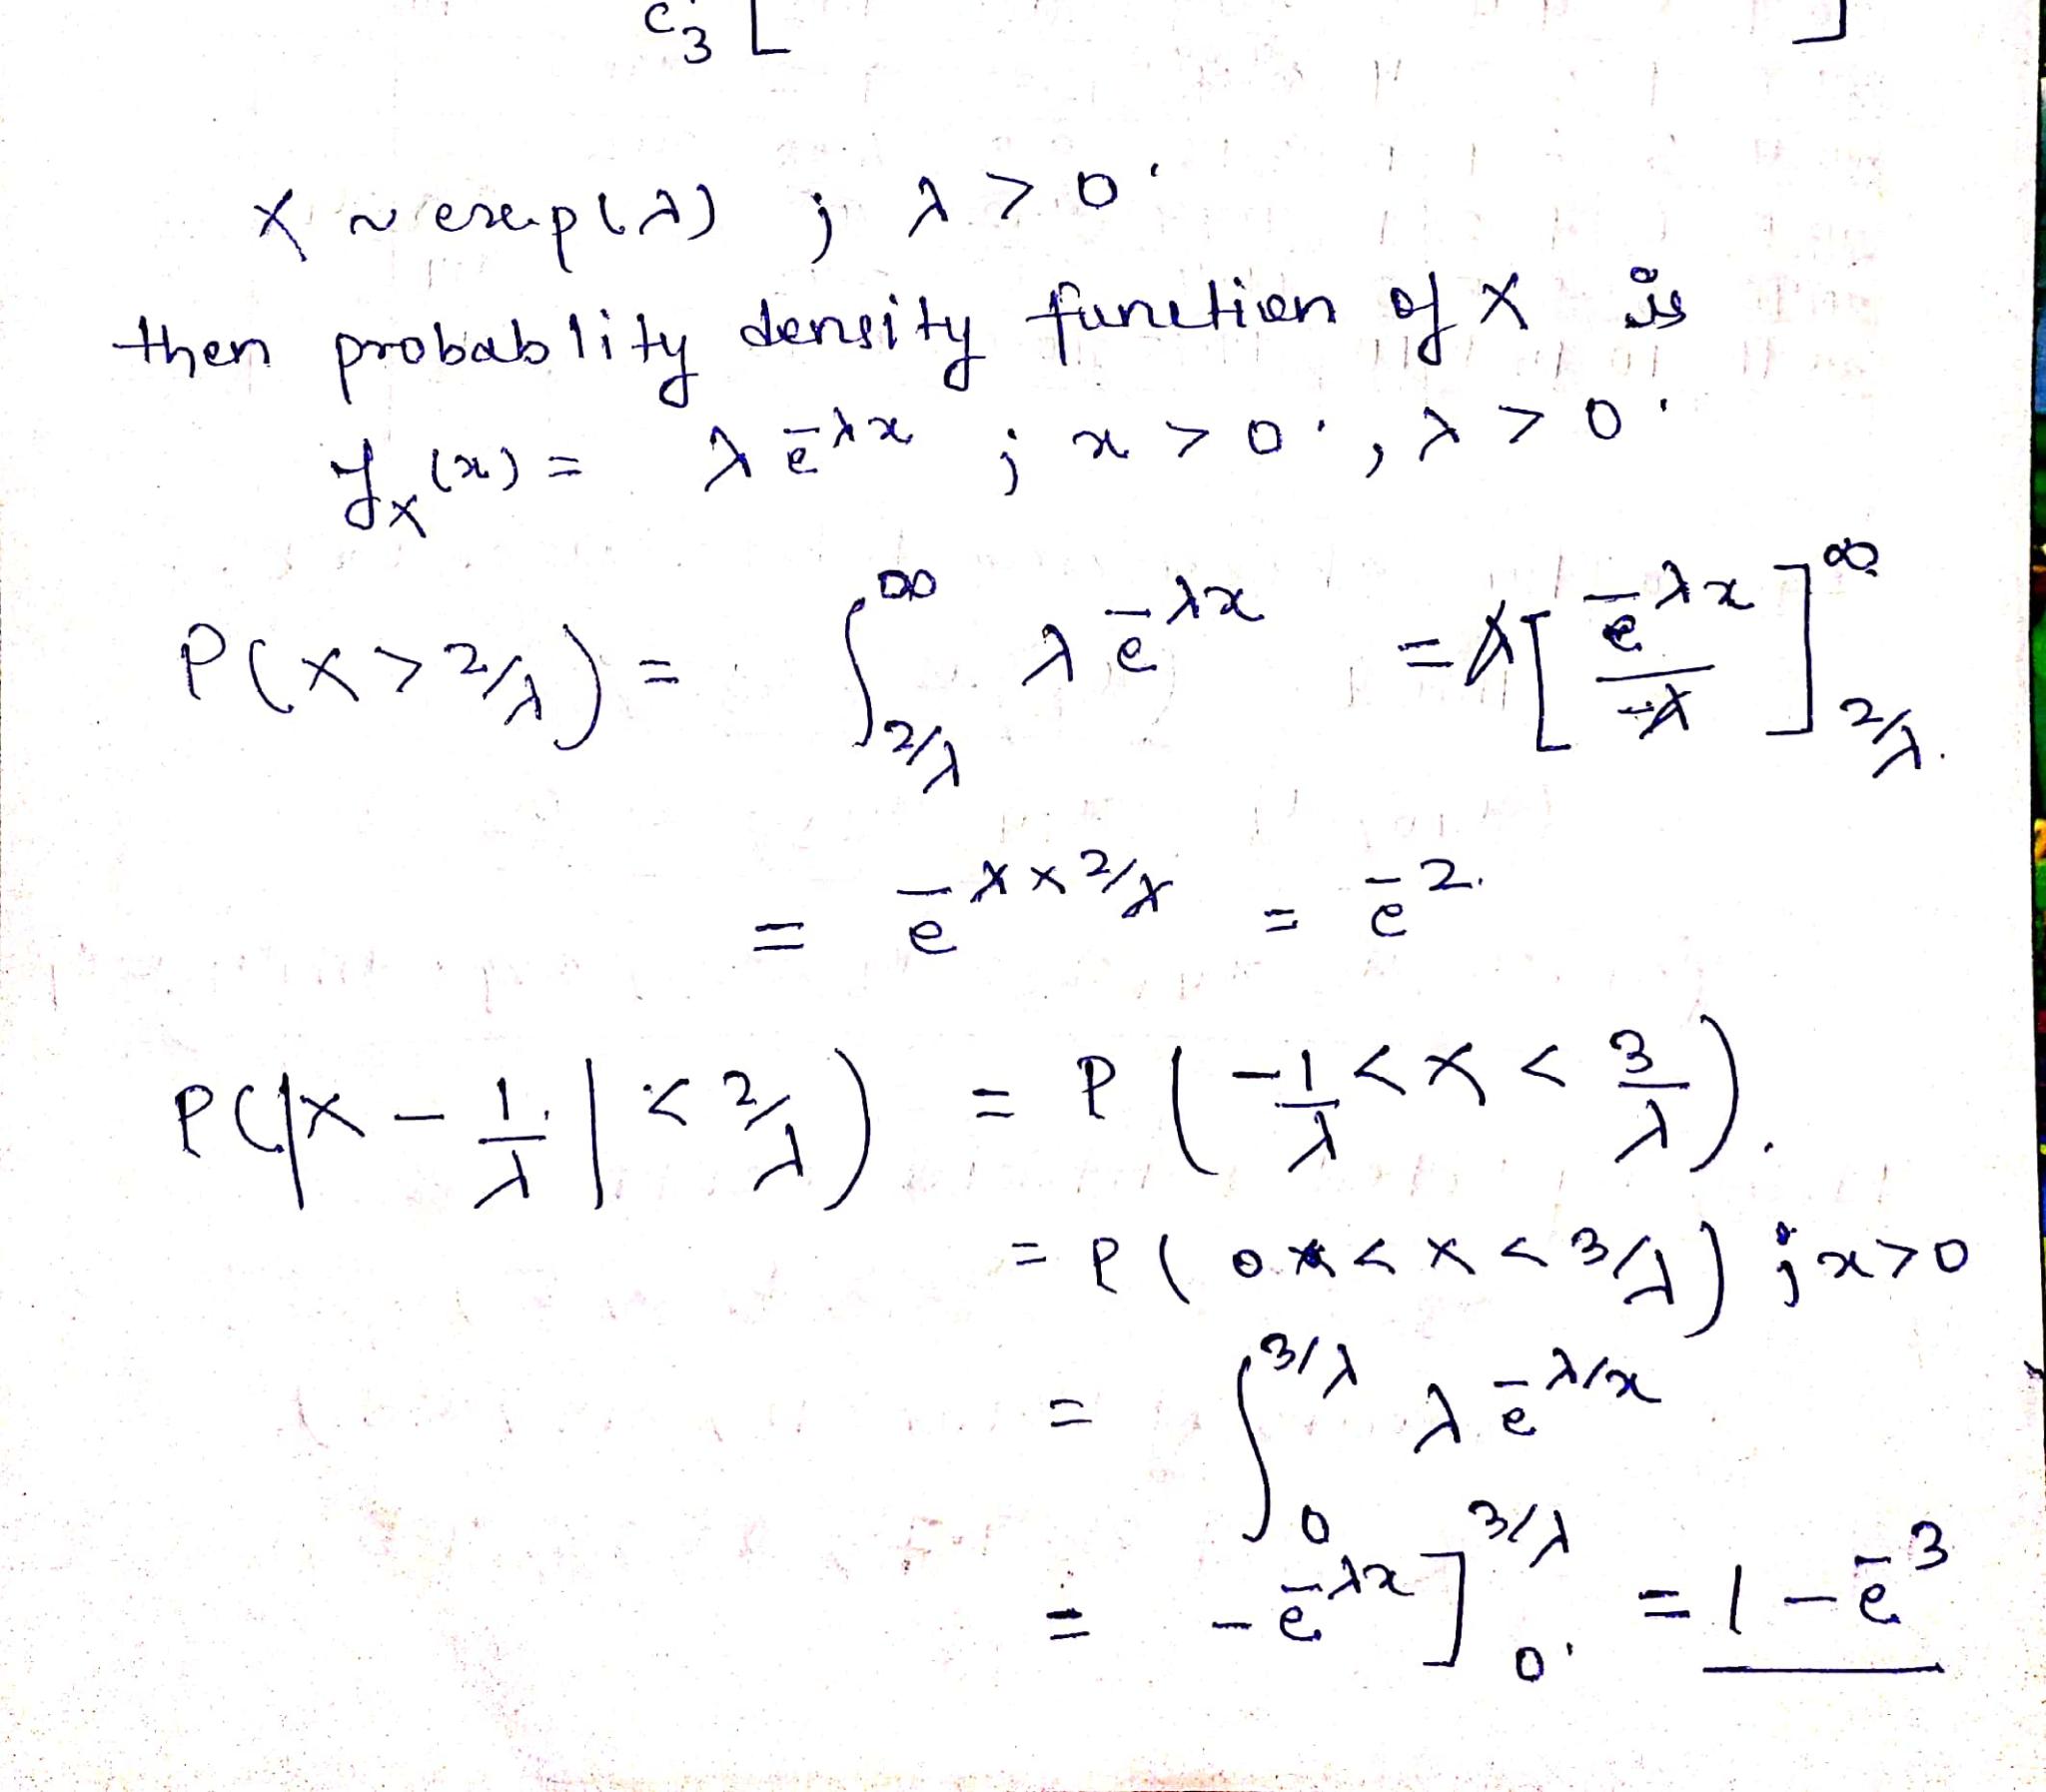 c₃ [ ]
X ~ exp(λ) ; λ > 0.
then probablity density function of X is
f_X(x) = λ e^{-λx} ; x > 0. , λ > 0.
P(X > 2/λ) = ∫_{2/λ}^{∞} λ e^{-λx} = λ [ e^{-λx} / -λ ]_{2/λ}^{∞}.
= e^{-λ × 2/λ} = e^{-2}.
P(|X - 1/λ| < 2/λ) = P( -1/λ < X < 3/λ ).
= P( 0 < X < 3/λ ) ; x > 0
= ∫_{0}^{3/λ} λ e^{-λ/x}
= - e^{-λx} ]_{0}^{3/λ} = 1 - e^{-3}